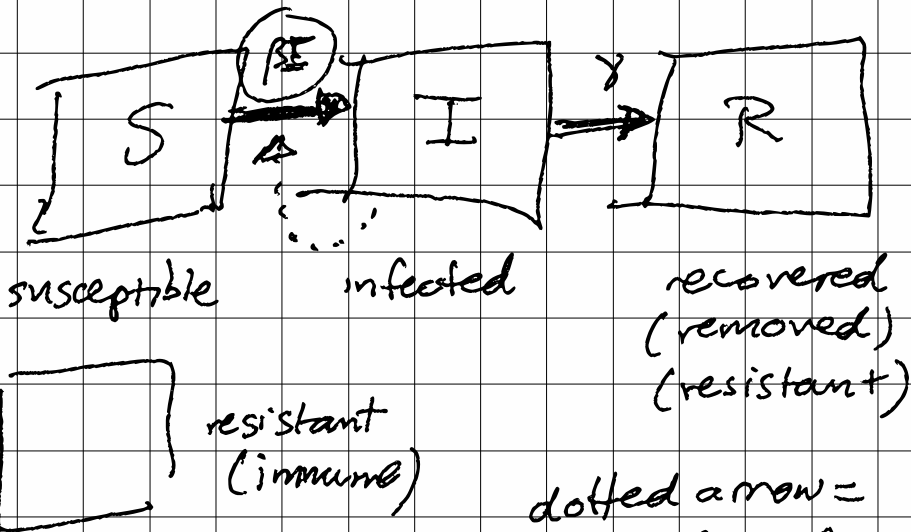 βI
γ
S
I
R
susceptible
infected
recovered
(removed)
(resistant)
resistant
(immune)
dotted arrow =